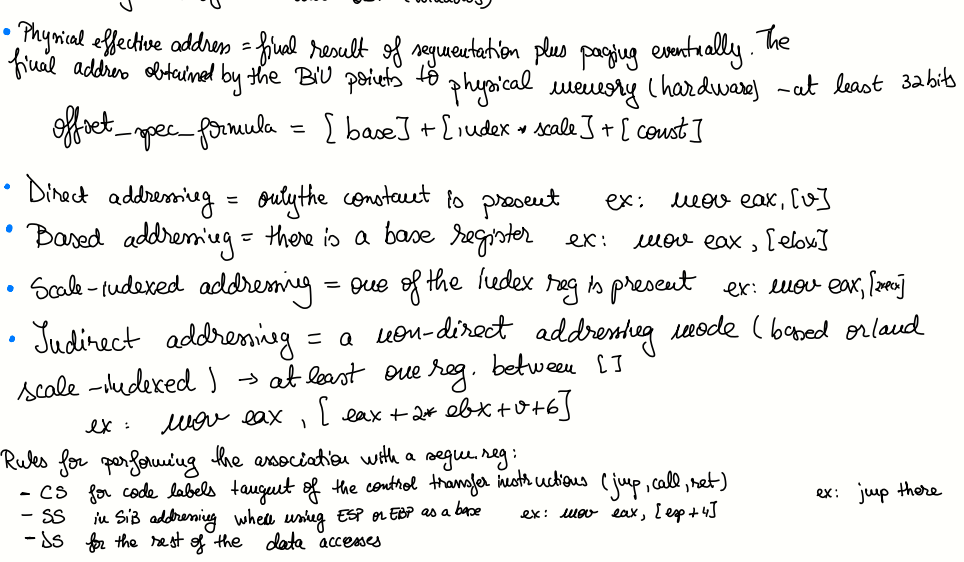 (windows)
• Physical effective address = final result of segmentation plus paging eventually. The
final address obtained by the BIU points to physical memory (hardware) - at least 32 bits
offset_spec_formula = [base] + [index * scale] + [const]
• Direct addressing = only the constant is present ex: mov eax, [v]
• Based addressing = there is a base register ex: mov eax, [ebx]
• Scale-indexed addressing = one of the index reg is present ex: mov eax,
• Indirect addressing = a non-direct addressing mode (based or/and
scale-indexed) → at least one reg. between []
ex: mov eax, [eax + 2* ebx + v + 6]
Rules for performing the association with a segm. reg:
- CS for code labels tangent of the control transfer instructions (jmp, call, ret) ex: jmp there
- SS in SIB addressing when using ESP or EBP as a base ex: mov eax, [esp + 4]
- DS for the rest of the data accesses